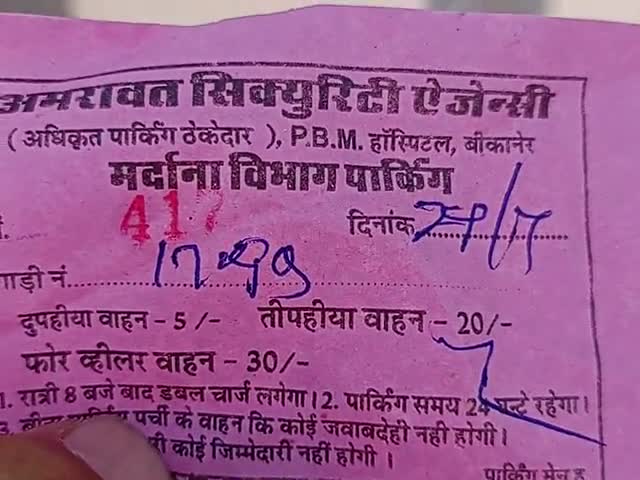 अमरावत सिक्युरिटी ऐजेन्सी
( अधिकृत पार्किंग ठेकेदार ), P.B.M. हॉस्पिटल, बीकानेर
मर्दाना विभाग पार्किंग
417 दिनांक
गाड़ी नं.
दुपहीया वाहन - 5 /- तीपहीया वाहन - 20/-
फोर व्हीलर वाहन - 30/-
1. रात्री 8 बजे बाद डबल चार्ज लगेगा। 2. पार्किंग समय 24 घन्टे रहेगा।
3. पर्ची के वाहन कि कोई जवाबदेही नही होगी।
कोई जिम्मेदारी नहीं होगी ।
पार्किंग मेन